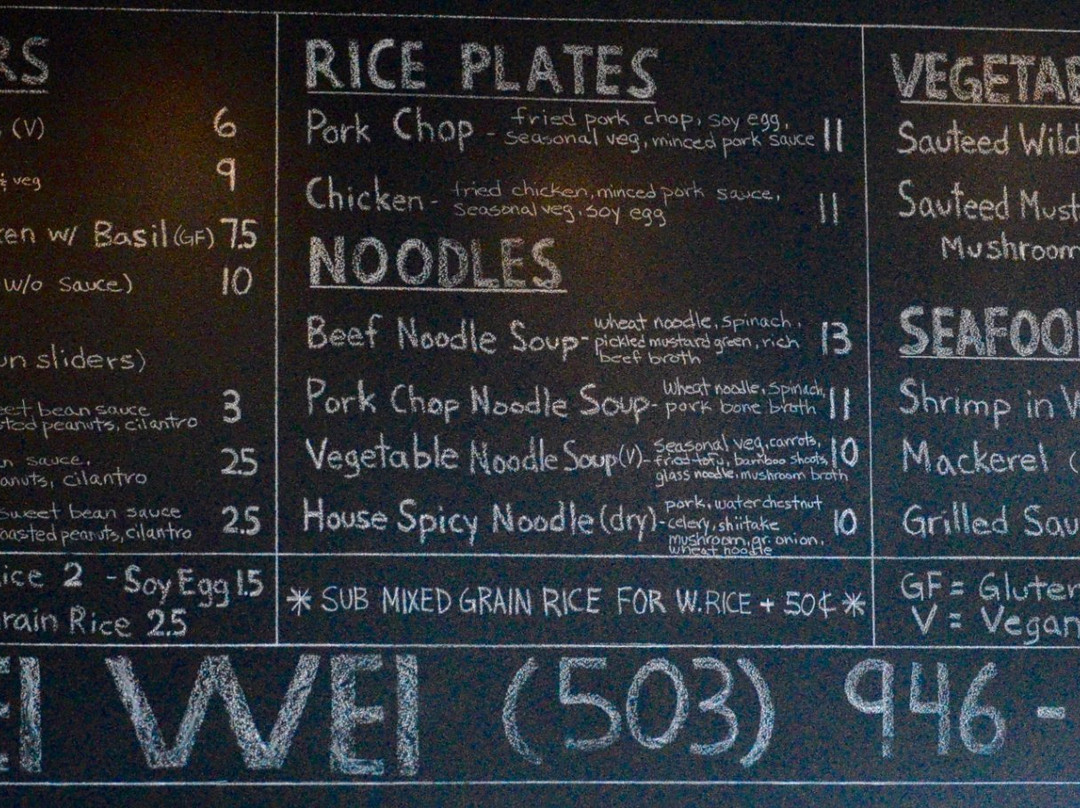 RS
(V) 6
& veg 9
ken w/ Basil (GF) 7.5
w/o sauce) 10
un sliders)
eet bean sauce
sted peanuts, cilantro 3
n sauce,
anuts, cilantro 25
sweet bean sauce
oasted peanuts, cilantro 2.5
ice 2 - Soy Egg 1.5
rain Rice 2.5
RICE PLATES
Pork Chop - fried pork chop, soy egg,
seasonal veg, minced pork sauce 11
Chicken - fried chicken, minced pork sauce,
seasonal veg, soy egg 11
NOODLES
Beef Noodle Soup - wheat noodle, spinach,
pickled mustard green, rich
beef broth 13
Pork Chop Noodle Soup - wheat noodle, spinach,
pork bone broth 11
Vegetable Noodle Soup (V) - seasonal veg, carrots,
fried tofu, bamboo shoots,
glass noodle, mushroom broth 10
House Spicy Noodle (dry) - pork, water chestnut
celery, shiitake
mushroom, gr. onion,
wheat noodle 10
* SUB MIXED GRAIN RICE FOR W. RICE + 50¢ *
VEGETAB
Sauteed Wild
Sauteed Must
Mushroom
SEAFOO
Shrimp in W
Mackerel (
Grilled Sau
GF = Gluten
V = Vegan
EI WEI (503) 946 -